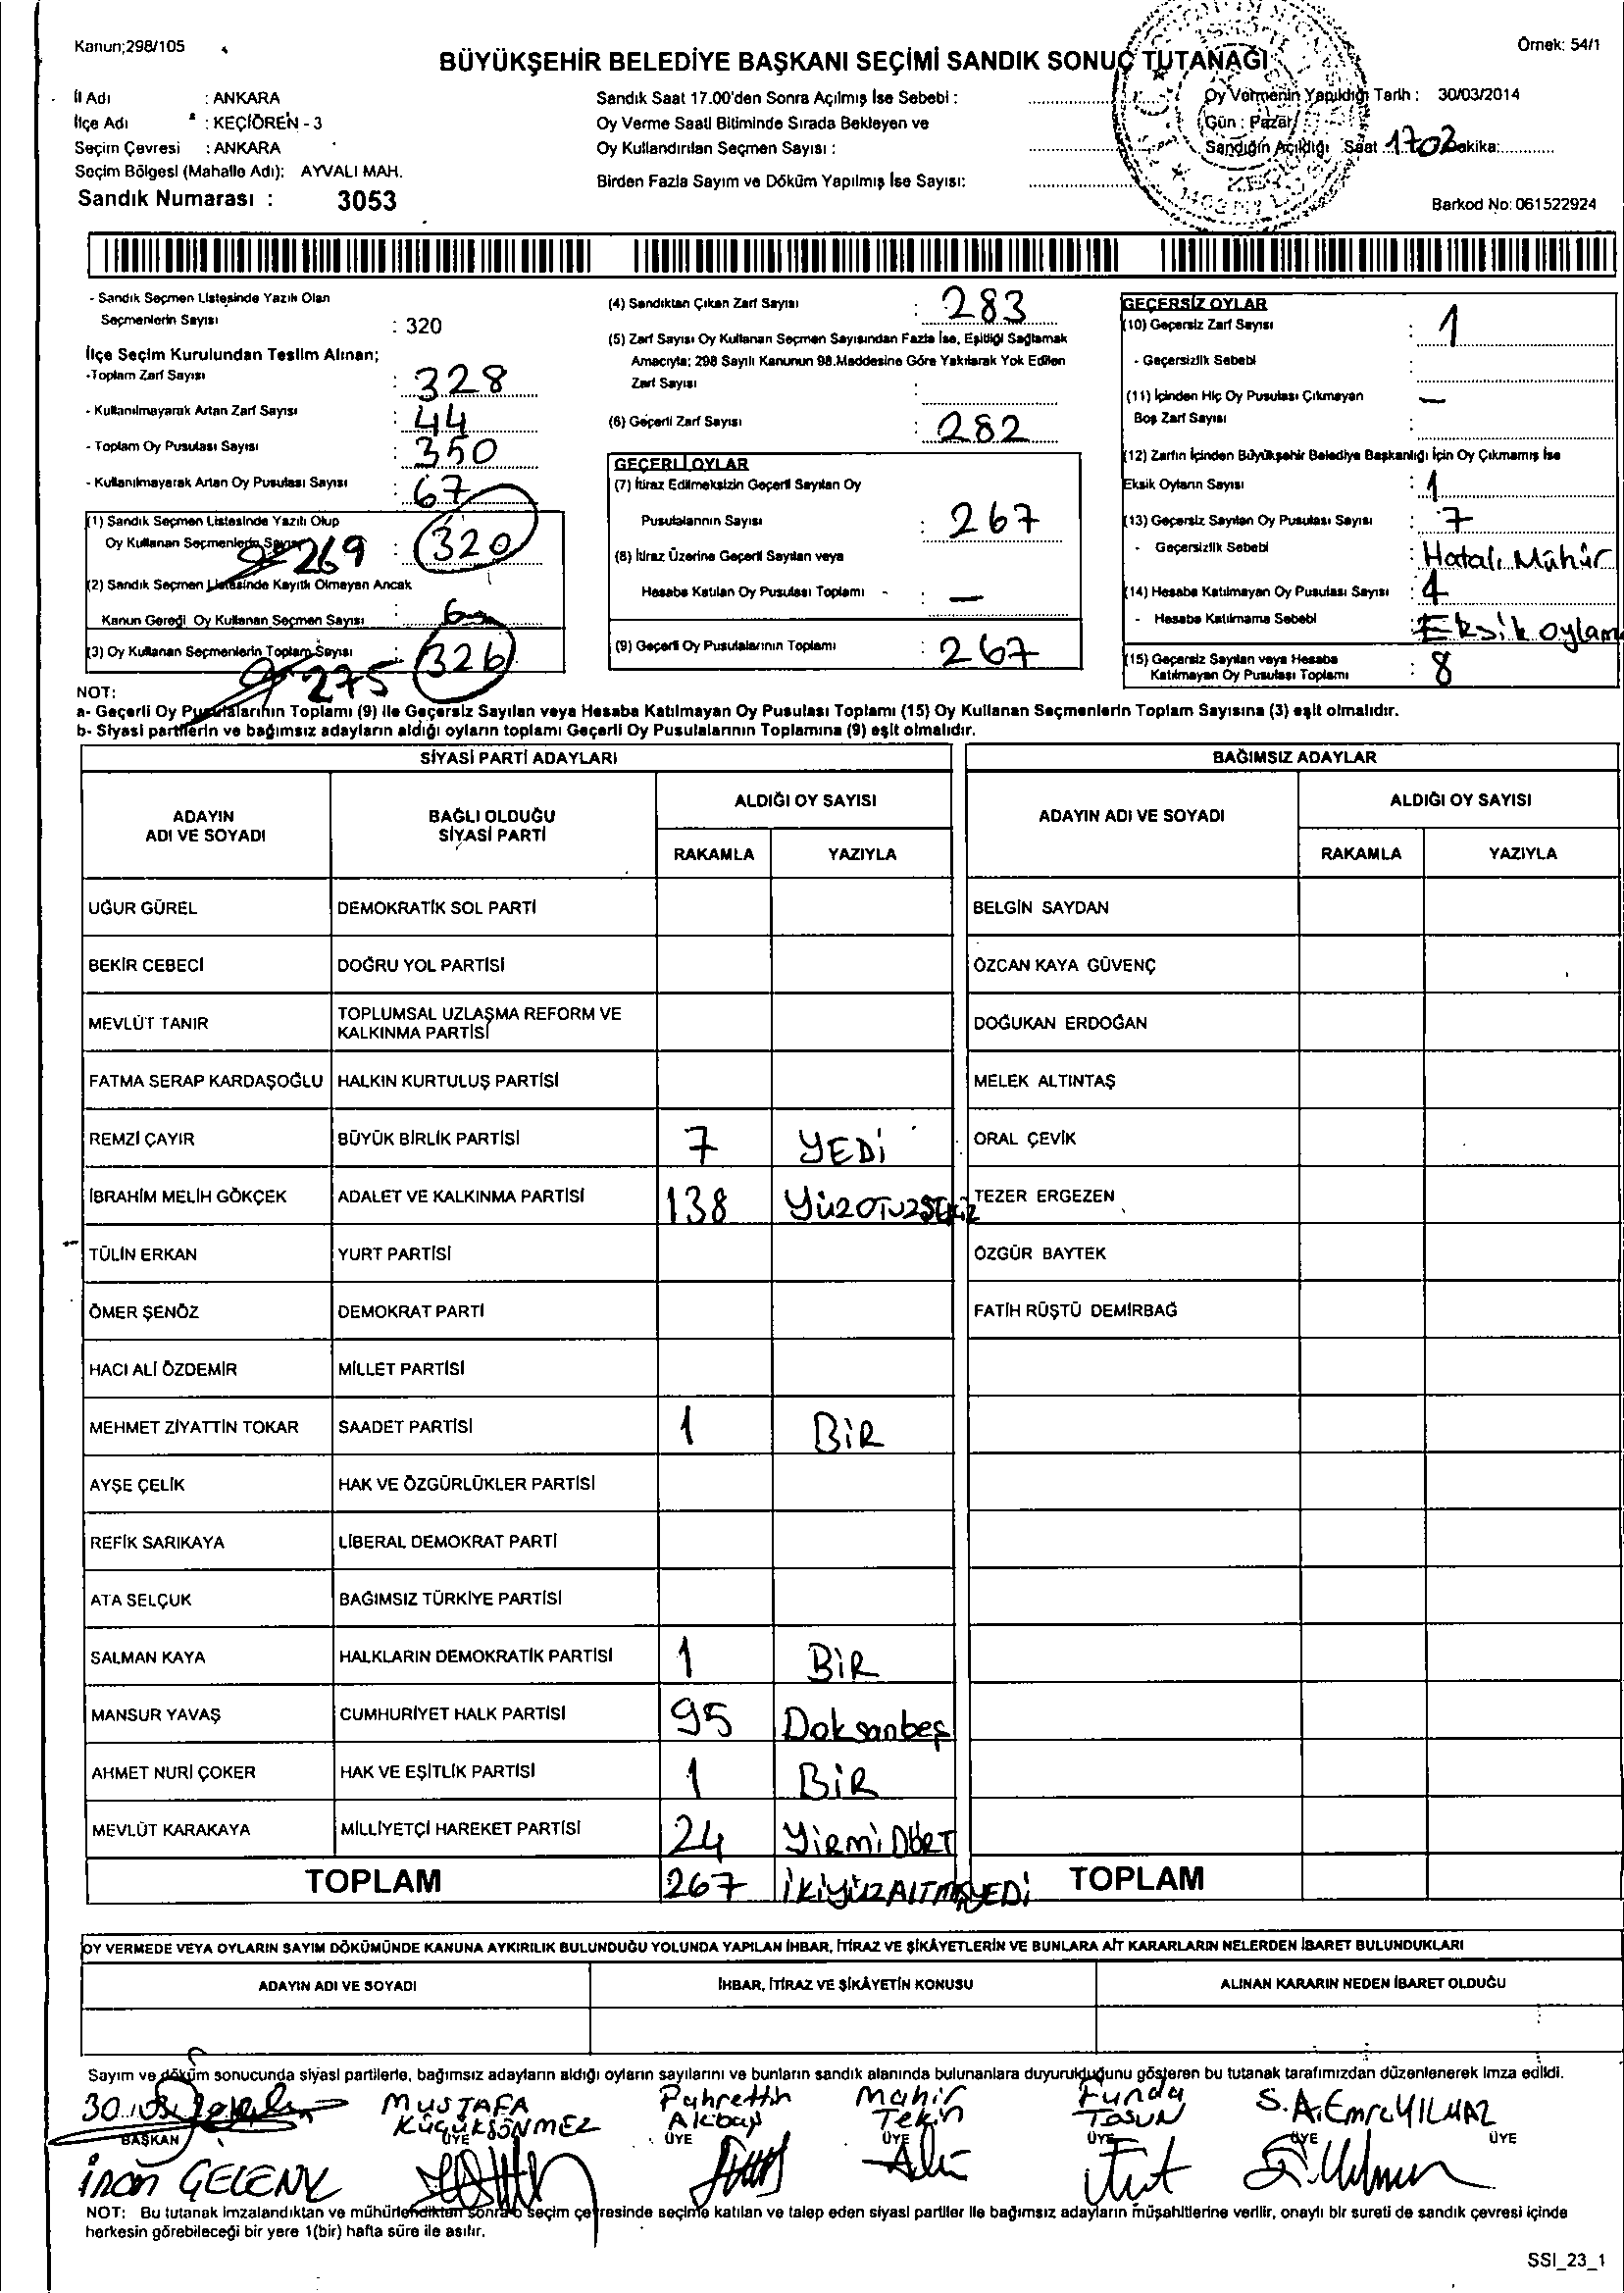 Kanun;298/105
Örnek: 54/1
BÜYÜKŞEHİR BELEDİYE BAŞKANI SEÇİMİ SANDIK SONUÇ TUTANAĞI
İl Adı : ANKARA
İlçe Adı : KEÇİÖREN - 3
Seçim Çevresi : ANKARA
Seçim Bölgesi (Mahalle Adı): AYVALI MAH.
Sandık Numarası : 3053
Sandık Saat 17.00'den Sonra Açılmış İse Sebebi :
Oy Verme Saati Bitiminde Sırada Bekleyen ve
Oy Kullandırılan Seçmen Sayısı :
Birden Fazla Sayım ve Döküm Yapılmış İse Sayısı:
Oy Vermenin Yapıldığı Tarih : 30/03/2014
Gün : Pazar
Sandığın Açıldığı Saat 1703 Dakika:
Barkod No: 061522924
- Sandık Seçmen Listesinde Yazılı Olan
Seçmenlerin Sayısı : 320
İlçe Seçim Kurulundan Teslim Alınan;
-Toplam Zarf Sayısı : 328
- Kullanılmayarak Artan Zarf Sayısı : 44
- Toplam Oy Pusulası Sayısı : 350
- Kullanılmayarak Artan Oy Pusulası Sayısı : 67
(1) Sandık Seçmen Listesinde Yazılı Olup
Oy Kullanan Seçmenlerin Sayısı 269 : 320
(2) Sandık Seçmen Listesinde Kayıtlı Olmayan Ancak
Kanun Gereği Oy Kullanan Seçmen Sayısı : 6
(3) Oy Kullanan Seçmenlerin Toplam Sayısı : 326
275
(4) Sandıktan Çıkan Zarf Sayısı : 283
(5) Zarf Sayısı Oy Kullanan Seçmen Sayısından Fazla İse, Eşitliği Sağlamak
Amacıyla; 298 Sayılı Kanunun 98.Maddesine Göre Yakılarak Yok Edilen
Zarf Sayısı :
(6) Geçerli Zarf Sayısı : 282
GEÇERLİ OYLAR
(7) İtiraz Edilmeksizin Geçerli Sayılan Oy
Pusulalarının Sayısı : 267
(8) İtiraz Üzerine Geçerli Sayılan veya
Hesaba Katılan Oy Pusulası Toplamı - : —
(9) Geçerli Oy Pusulalarının Toplamı : 267
GEÇERSİZ OYLAR
(10) Geçersiz Zarf Sayısı : 1
- Geçersizlik Sebebi :
(11) İçinden Hiç Oy Pusulası Çıkmayan —
Boş Zarf Sayısı :
(12) Zarfın İçinden Büyükşehir Belediye Başkanlığı İçin Oy Çıkmamış İse
Eksik Oyların Sayısı : 1
(13) Geçersiz Sayılan Oy Pusulası Sayısı : 7
- Geçersizlik Sebebi : Hatalı Mühür
(14) Hesaba Katılmayan Oy Pusulası Sayısı : 4
- Hesaba Katılmama Sebebi : Eksik oylama
(15) Geçersiz Sayılan veya Hesaba
Katılmayan Oy Pusulası Toplamı : 8
NOT:
a- Geçerli Oy Pusulalarının Toplamı (9) ile Geçersiz Sayılan veya Hesaba Katılmayan Oy Pusulası Toplamı (15) Oy Kullanan Seçmenlerin Toplam Sayısına (3) eşit olmalıdır.
b- Siyasi partilerin ve bağımsız adayların aldığı oyların toplamı Geçerli Oy Pusulalarının Toplamına (9) eşit olmalıdır.
SİYASİ PARTİ ADAYLARI
BAĞIMSIZ ADAYLAR
ADAYIN
ADI VE SOYADI
BAĞLI OLDUĞU
SİYASİ PARTİ
ALDIĞI OY SAYISI
RAKAMLA YAZIYLA
ADAYIN ADI VE SOYADI
ALDIĞI OY SAYISI
RAKAMLA YAZIYLA
UĞUR GÜREL DEMOKRATİK SOL PARTİ BELGİN SAYDAN
BEKİR CEBECİ DOĞRU YOL PARTİSİ ÖZCAN KAYA GÜVENÇ
MEVLÜT TANIR TOPLUMSAL UZLAŞMA REFORM VE
KALKINMA PARTİSİ DOĞUKAN ERDOĞAN
FATMA SERAP KARDAŞOĞLU HALKIN KURTULUŞ PARTİSİ MELEK ALTINTAŞ
REMZİ ÇAYIR BÜYÜK BİRLİK PARTİSİ 7 YEDİ ORAL ÇEVİK
İBRAHİM MELİH GÖKÇEK ADALET VE KALKINMA PARTİSİ 138 YüzOTUZSEKİZ TEZER ERGEZEN
TÜLİN ERKAN YURT PARTİSİ ÖZGÜR BAYTEK
ÖMER ŞENÖZ DEMOKRAT PARTİ FATİH RÜŞTÜ DEMİRBAĞ
HACI ALİ ÖZDEMİR MİLLET PARTİSİ
MEHMET ZİYATTİN TOKAR SAADET PARTİSİ 1 BİR
AYŞE ÇELİK HAK VE ÖZGÜRLÜKLER PARTİSİ
REFİK SARIKAYA LİBERAL DEMOKRAT PARTİ
ATA SELÇUK BAĞIMSIZ TÜRKİYE PARTİSİ
SALMAN KAYA HALKLARIN DEMOKRATİK PARTİSİ 1 BİR
MANSUR YAVAŞ CUMHURİYET HALK PARTİSİ 95 Doksanbeş
AHMET NURİ ÇOKER HAK VE EŞİTLİK PARTİSİ 1 BİR
MEVLÜT KARAKAYA MİLLİYETÇİ HAREKET PARTİSİ 24 YİRMİDÖRT
TOPLAM 267 İKİYÜZALTMIŞYEDİ TOPLAM
OY VERMEDE VEYA OYLARIN SAYIM DÖKÜMÜNDE KANUNA AYKIRILIK BULUNDUĞU YOLUNDA YAPILAN İHBAR, İTİRAZ VE ŞİKÂYETLERİN VE BUNLARA AİT KARARLARIN NELERDEN İBARET BULUNDUKLARI
ADAYIN ADI VE SOYADI İHBAR, İTİRAZ VE ŞİKÂYETİN KONUSU ALINAN KARARIN NEDEN İBARET OLDUĞU
Sayım ve döküm sonucunda siyasi partilerle, bağımsız adayların aldığı oyların sayılarını ve bunların sandık alanında bulunanlara duyurulduğunu gösteren bu tutanak tarafımızdan düzenlenerek imza edildi.
MUSTAFA Fahrettin Mahir Funda S.A.Emre YILMAZ
KÜÇÜKSÖNMEZ Akbaş Tekin TOSUN
BAŞKAN ÜYE ÜYE ÜYE ÜYE ÜYE ÜYE
NOT: Bu tutanak imzalandıktan ve mühürlendikten sonra o seçim çevresinde seçime katılan ve talep eden siyasi partiler ile bağımsız adayların müşahitlerine verilir, onaylı bir sureti de sandık çevresi içinde
herkesin görebileceği bir yere 1(bir) hafta süre ile asılır.
SSI_23_1